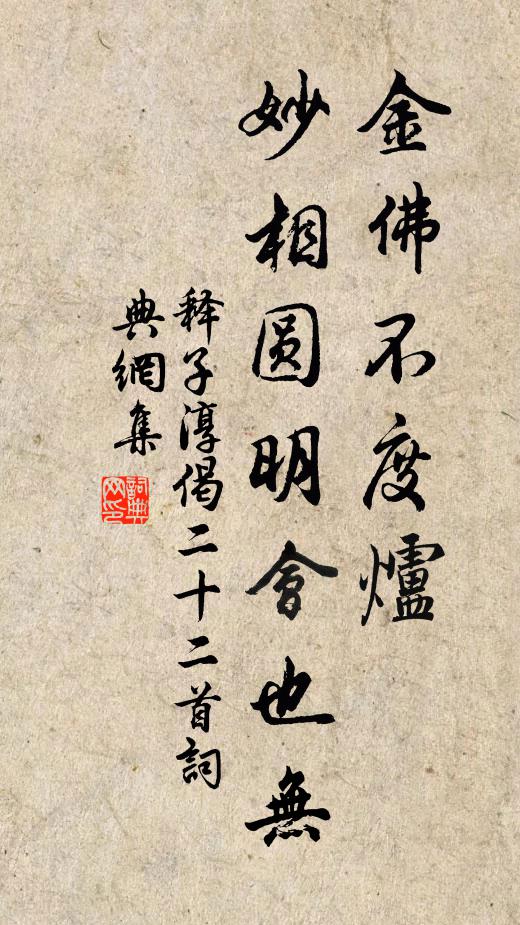 金佛不度爐
妙相圆明會也無
释子淳偈二十二首詞
典網集
詞典
网印